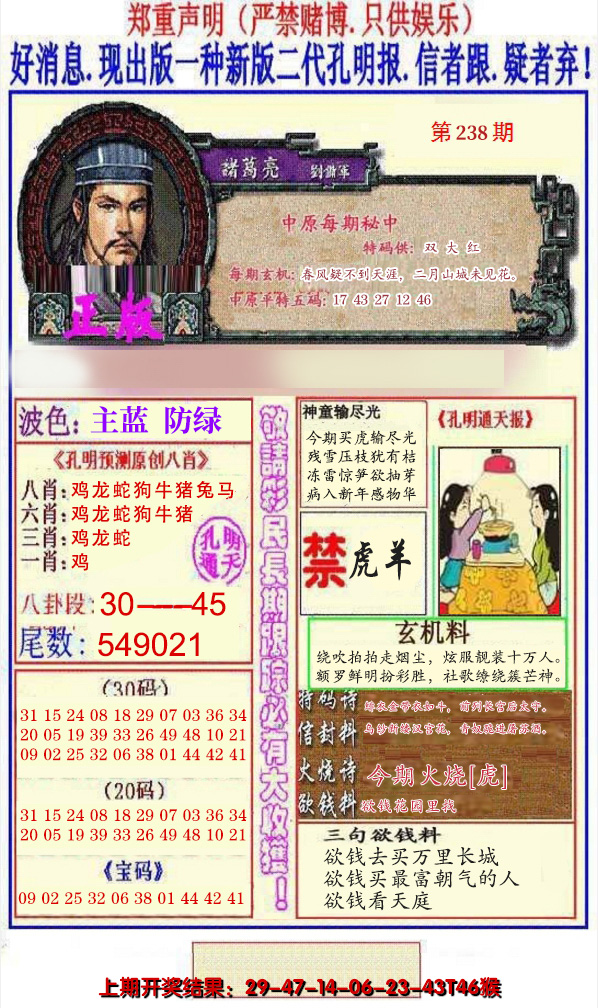 郑重声明（严禁赌博.只供娱乐）
好消息.现出版一种新版二代孔明报.信者跟.疑者弃！
第238期
諸葛亮 劉備軍
中原每期秘中
特码供：双大红
每期玄机：春风疑不到天涯，二月山城未见花。
中原平特五码：17 43 27 12 46
正版
波色：主蓝 防绿
《孔明预测原创八肖》
八肖：鸡龙蛇狗牛猪兔马
六肖：鸡龙蛇狗牛猪
三肖：鸡龙蛇
一肖：鸡
孔明
通天
八卦段：30——45
尾数：549021
（30码）
31 15 24 08 18 29 07 03 36 34
20 05 19 39 33 26 49 48 10 21
09 02 25 32 06 38 01 44 42 41
（20码）
31 15 24 08 18 29 07 03 36 34
20 05 19 39 33 26 49 48 10 21
《宝码》
09 02 25 32 06 38 01 44 42 41
敬請彩民長期跟踪必有大收獲！
神童输尽光
今期买虎输尽光
残雪压枝犹有桔
冻雷惊笋欲抽芽
病入新年感物华
《孔明通天报》
禁 虎羊
玄机料
绕吹拍拍走烟尘，炫服靓装十万人。
额罗鲜明扮彩胜，社歌缭绕簇芒神。
特码诗 绯衣金带衣如斗，前列长官后太守。
信封料 乌纱新缕汉宫花，青奴跪进屠苏酒。
火烧诗 今期火烧[虎]
欲钱料 欲钱花园里找
三句欲钱料
欲钱去买万里长城
欲钱买最富朝气的人
欲钱看天庭
上期开奖结果：29-47-14-06-23-43T46猴